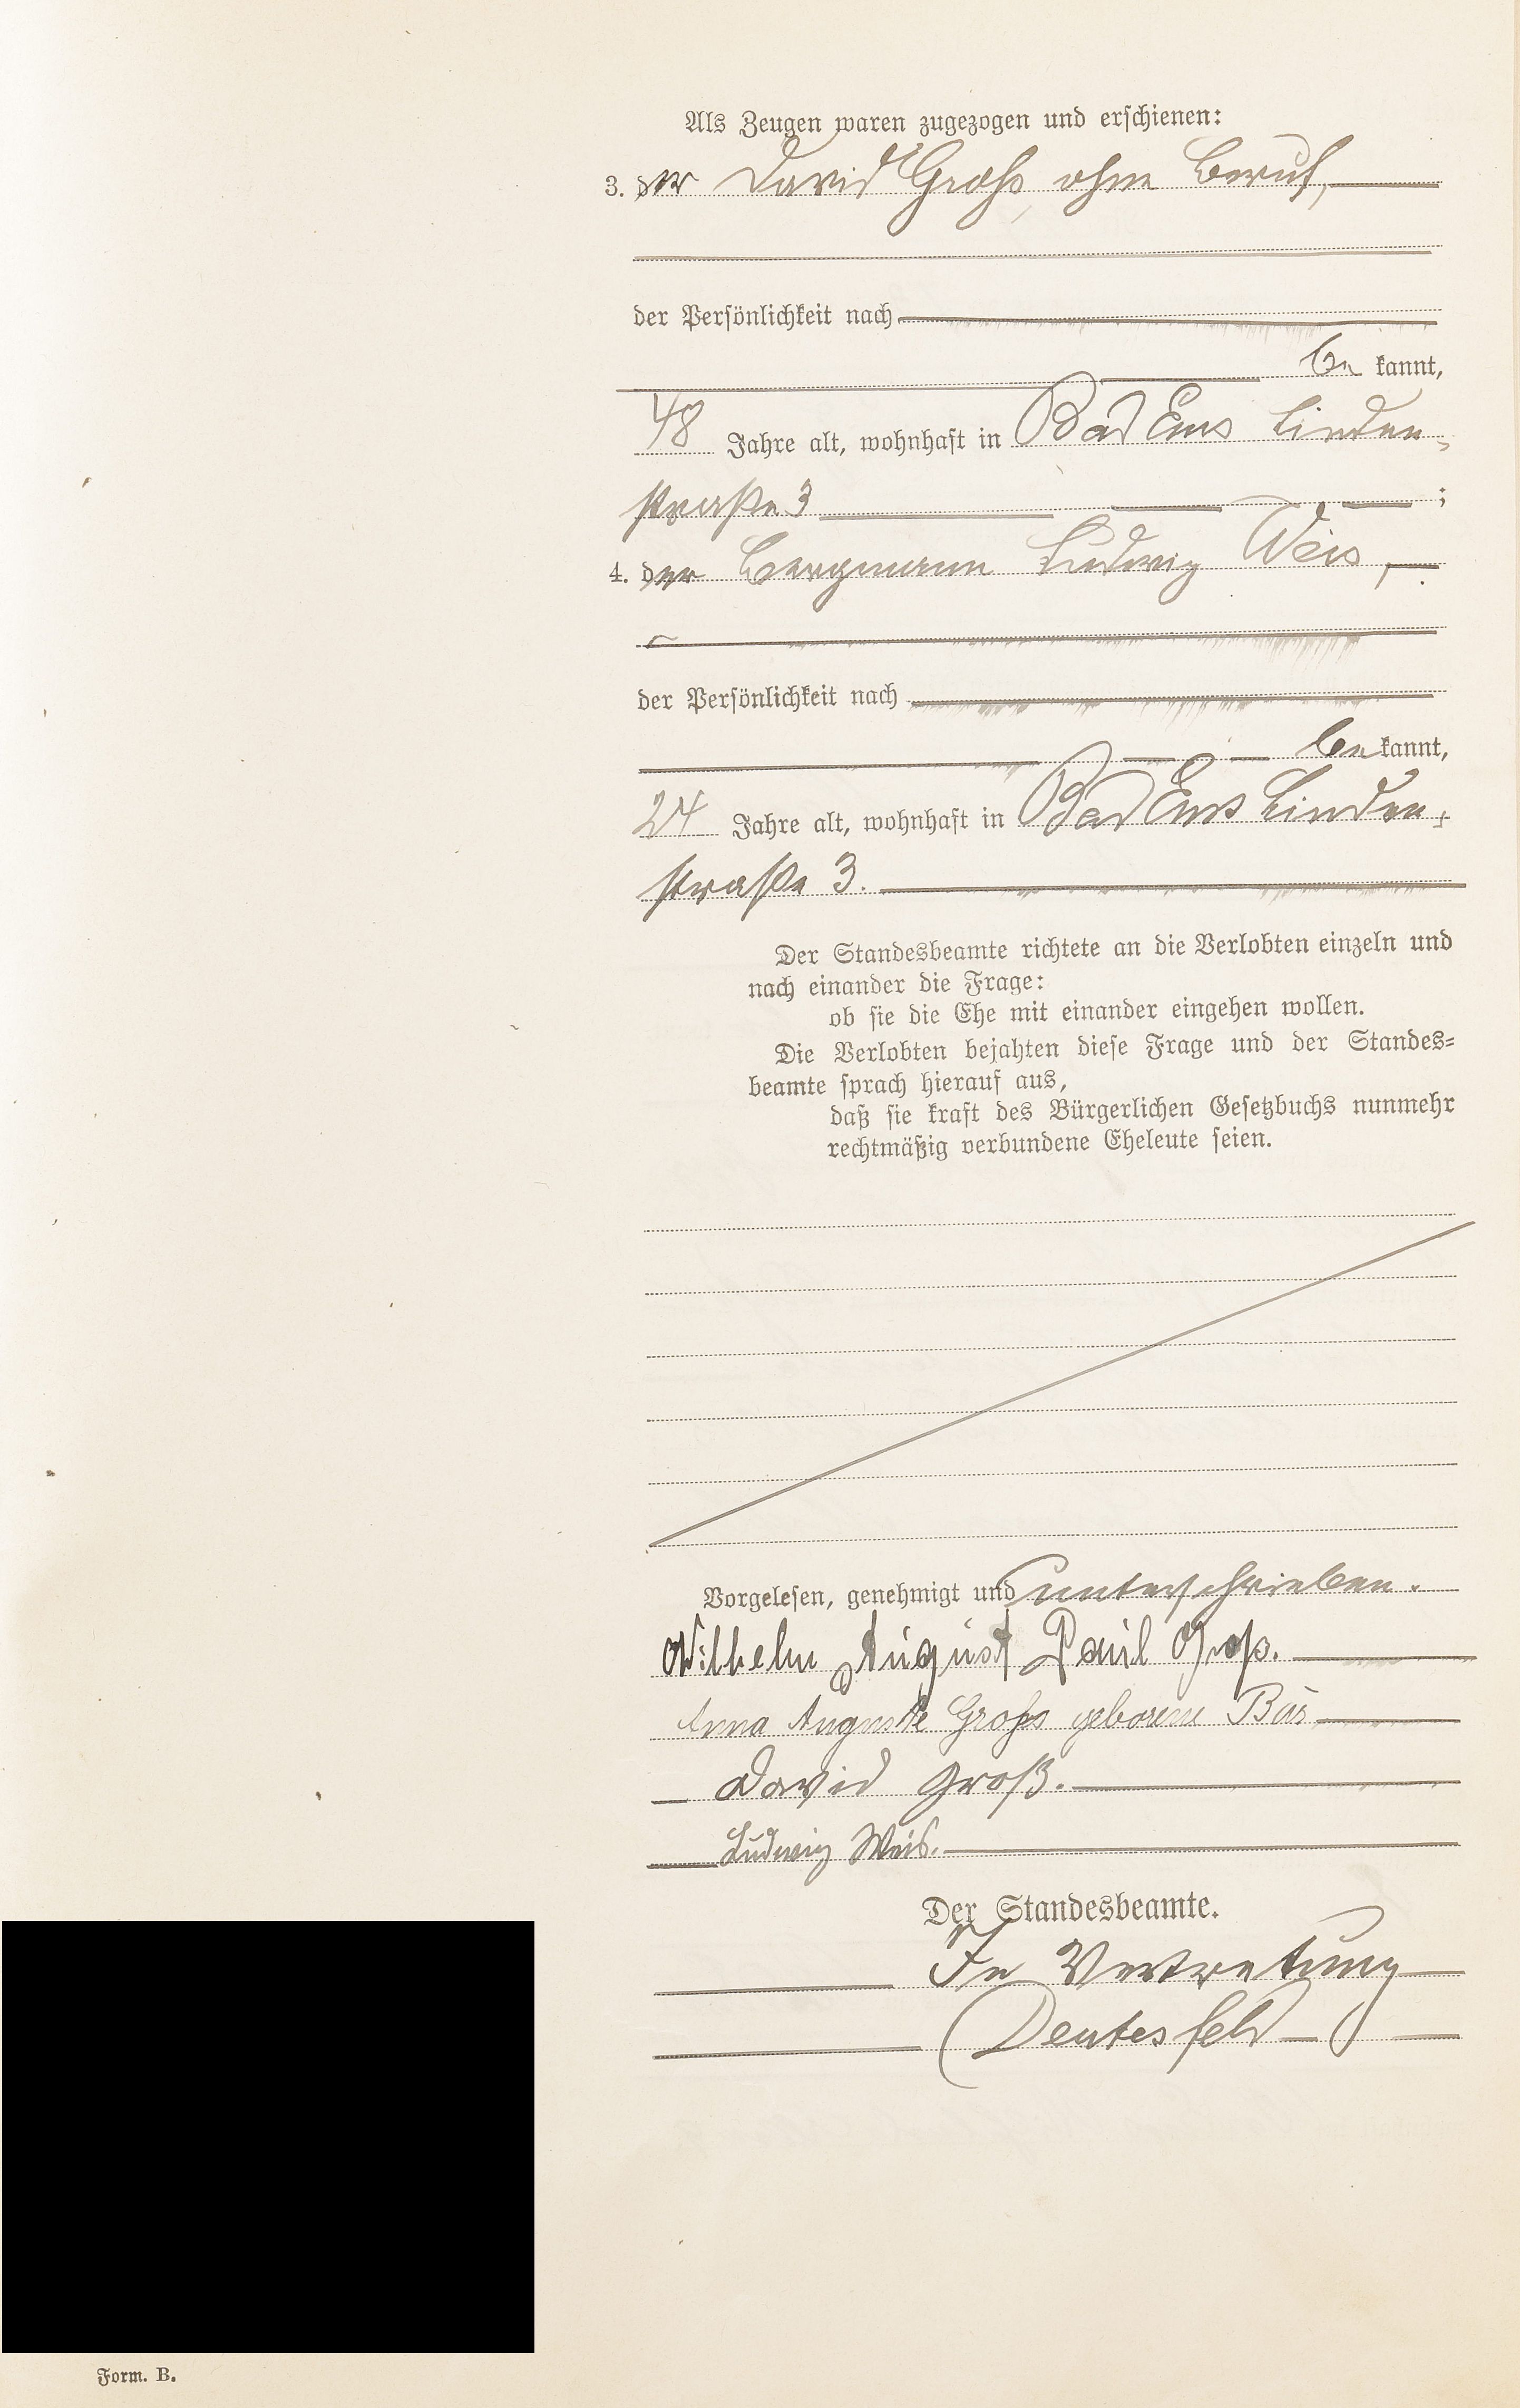 Als Zeugen waren zugezogen und erschienen:
3. der David Groß, ohne Beruf,
der Persönlichkeit nach
be kannt,
48 Jahre alt, wohnhaft in Bad Ems Linden-
straße 3 ;
4. der Bergmann Ludwig Weis,
der Persönlichkeit nach
be kannt,
24 Jahre alt, wohnhaft in Bad Ems Linden-
straße 3.
Der Standesbeamte richtete an die Verlobten einzeln und
nach einander die Frage:
ob sie die Ehe mit einander eingehen wollen.
Die Verlobten bejahten diese Frage und der Standes-
beamte sprach hierauf aus,
daß sie kraft des Bürgerlichen Gesetzbuchs nunmehr
rechtmäßig verbundene Eheleute seien.
Vorgelesen, genehmigt und unterschrieben.
Wilhelm August Paul Groß.
Anna Auguste Groß geborene Bär
David Groß.
Ludwig Weis.
Der Standesbeamte.
In Vertretung
Deutesfeld
Form. B.